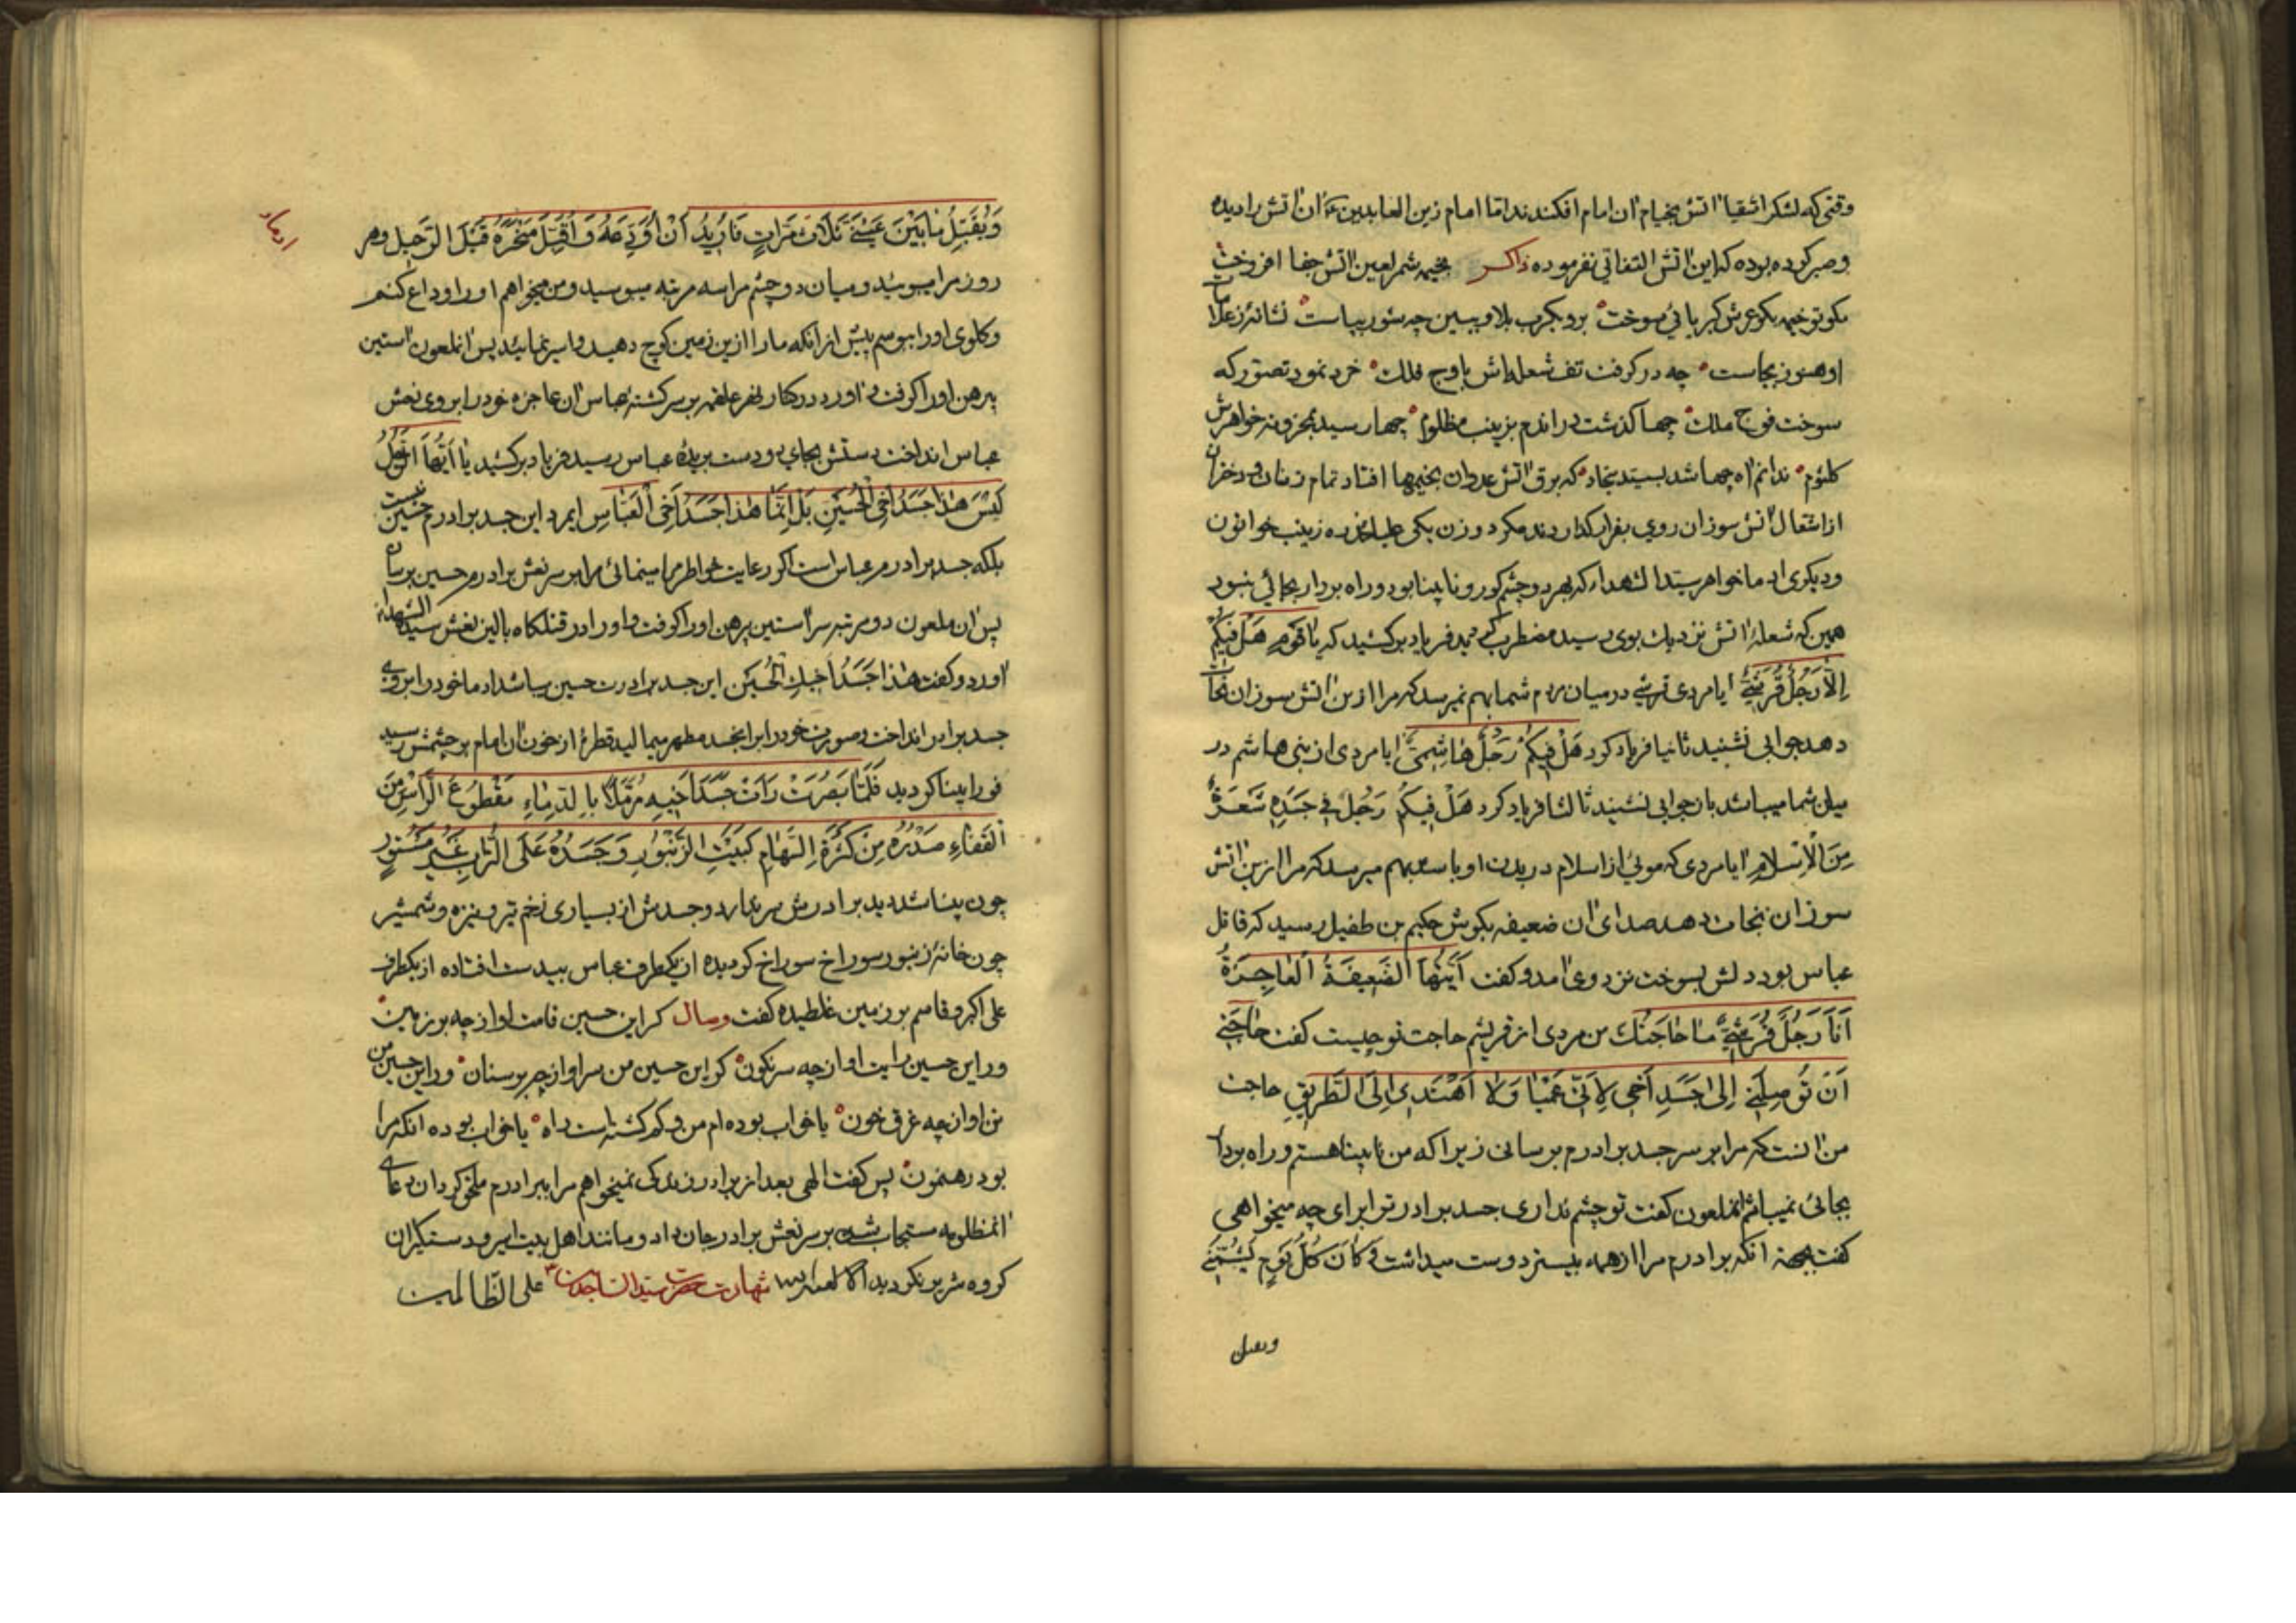 وقتی که لشکر اشقیا آتش بخیام آن امام افکندند اما امام زین العابدین ع آن آتش را دیده
و صبر کرده بوده که این آتش التفاتی نفرموده ذاکر بخیمه شمر لعین آتش جفا افروخت
مکو تو خیمه بکو عرش کبریائی سوخت برو بکرب بلا و ببین چه شور بپاست نشانهٔ ز علامات
او هنوز بجاست چه در کرفت تف شعله‌اش باوج فلک خرد نمود تصور که
سوخت فوج ملک چها کذشت در اندم بزینب مظلوم چها رسید بمحزونه خواهرش
کلثوم ندانم آه چها شد بسید سجاد که برق آتش عدوان بخیمها افتاد تمام زنان و دختران
از اشتعال آتش سوزان روی بفرار کذاردند مکر دو زن یکی علیا مخدره زینب خواتون
و دیکری ادما خواهر سید الشهداء که بهر دو چشم کور و نابینا بود و راه بردار بجائی نبود
همین که شعلهٔ آتش نزدیک بوی رسید مضطرب کردید فریاد برکشید که یا قوم هل فیکم
إلا رجل قریشی آیا مردی قریشی در میان مردم شما بهم نمیرسد که مرا ازین آتش سوزان نجات
دهد جوابی نشنید ثانیا فریاد کرد هَلْ فِیکُمْ رَجُلٌ هَاشِمِیٌّ آیا مردی از بنی هاشم در
میان شما میباشد باز جوابی نشنید ثالثا فریاد کرد هَلْ فِیکُمْ رَجُلٌ فی جَسَدِهِ شَعَرَةٌ
مِنَ الْإِسْلَامِ آیا مردی که موئی از اسلام در بدن او باشد بهم میرسد که مرا ازین آتش
سوزان نجات دهد صدای آن ضعیفه بکوش حکیم بن طفیل رسید که قاتل
عباس بود دلش بسوخت نزد وی آمد و کفت أَیَّتُهَا الضَّعِیفَةُ الْعَاجِزَةُ
أَنَا رَجُلٌ قُرَیْشِیٌّ مَا حَاجَتُکِ من مردی از قریشم حاجت تو چیست کفت حَاجَتِی
أَنْ تُوصِلَنِی إِلَی جَسَدِ أَخِی لِأَنِّی عَمْیَا وَلَا أَهْتَدِی إِلَی الطَّرِیقِ حاجت
من آنست که مرا بر سر جسد برادرم برسانی زیرا که من نابینا هستم و راه بردار
بجائی نمیباشم انملعون کفت تو چشم نداری جسد برادر ترا برای چه میخواهی
کفت بجهة آنکه برادرم مرا از همه بیشتر دوست میداشت وَ کَانَ کُلَّ یَوْمٍ یَشُمُّنِی
ویقبل
وَیُقَبِّلُ مَا بَیْنَ عَیْنَیَّ ثَلَاثَ مَرَّاتٍ فَأُرِیدُ أَنْ أُوَدِّعَهُ وَ أُقَبِّلَ مَنْحَرَهُ قَبْلَ الرَّحِیلِ و هر
روز مرا میبوئید و میان دو چشم مرا سه مرتبه میبوسید و من میخواهم او را وداع کنم
و کلوی او را ببوسم پیش از آنکه ما را ازین زمین کوچ دهید و اسیر نمائید پس انملعون آستین
پیرهن او را کرفت و آورد در کنار نهر علقمه بر سر کشته عباس آن عاجزه خود را بروی نعش
عباس انداخت دستش بجای دو دست بریدهٔ عباس رسید فریاد برکشید یَا أَیُّهَا الرَّجُلُ
لَیْسَ هَذَا جَسَدُ أَخِی الْحُسَیْنِ بَلْ إِنَّمَا هَذَا جَسَدُ أَخِی الْعَبَّاسِ ایمرد این جسد برادرم حسین نیست
بلکه جسد برادرم عباس است اکر رعایت خواطر مرا مینمائی مرا بر سر نعش برادرم حسین برسان
پس آن ملعون دو مرتبه سر آستین پیرهن او را کرفت و او را در قتلکاه بالین نعش سید الشهداء
آورد و کفت هَذَا جَسَدُ أَخِیكِ الْحُسَیْنِ این جسد برادرت حسین میباشد ادما خود را بروی
جسد برادر انداخت و صورت خود را بر انجسد مطهر میمالید قطرهٔ از خون آن امام بر چشمش رسید
فورا بینا کردید فَلَمَّا بَصُرَتْ رَأَتْ جَسَدَ أَخِیهِ مُرَمَّلًا بِالدِّمَاءِ مَقْطُوعَ الرَّأْسِ مِنَ
الْقَفَاءِ صَدْرُهُ مِنْ کَثْرَةِ السِّهَامِ کَبَیْتِ الزَّنْبُورِ وَ جَسَدُهُ عَلَی التُّرَابِ غَیْرَ مَسْتُورٍ
چون بینا شد دید برادرش سر ندارد و جسدش از بسیاری زخم تیر و نیزه و شمشیر
چون خانهٔ زنبور سوراخ سوراخ کردیده از یکطرف عباس بیدست افتاده از یکطرف
علی اکبر و قاسم بر زمین غلطیده کفت وصال کر این حسین قامت او از چه بر زمین
ور این حسین رایت او از چه سرنکون کر این حسین من سر او از چه بر سنان ور این حسین من
تن او از چه غرق خون یا خواب بوده‌ام من و کم کشته است راه یا خواب بوده آنکه مرا
بود رهنمون پس کفت الهی بعد از برادر زندکی نمیخواهم مرا ببرادرم ملحق کردان دعای
انمظلومه مستجاب شده بر سر نعش برادر جان داد و مانند اهل بیت اسیر و دستکیر ان
کروه شریر نکردید الا لعنة الله شهادت حضرت سید الساجدین ع علی الظالمین